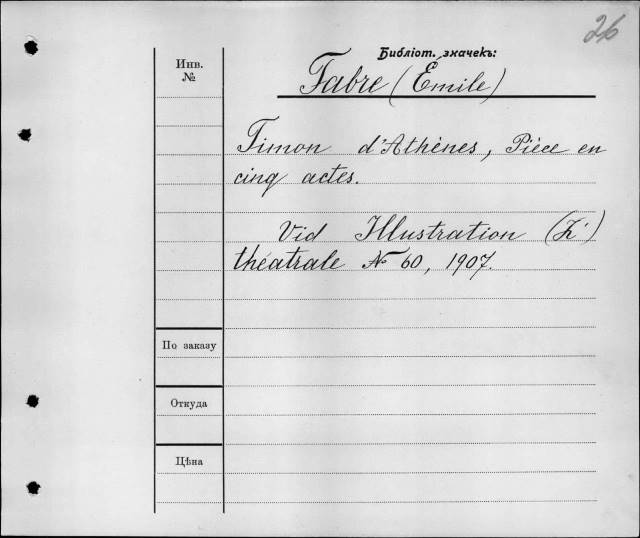 26
Библіот. значекъ:
Инв.
№
Fabre (Émile)
Timon d'Athènes, Pièce en
cinq actes.
Vid Illustration (L')
théatrale № 60, 1907.
По заказу
Откуда
Цѣна